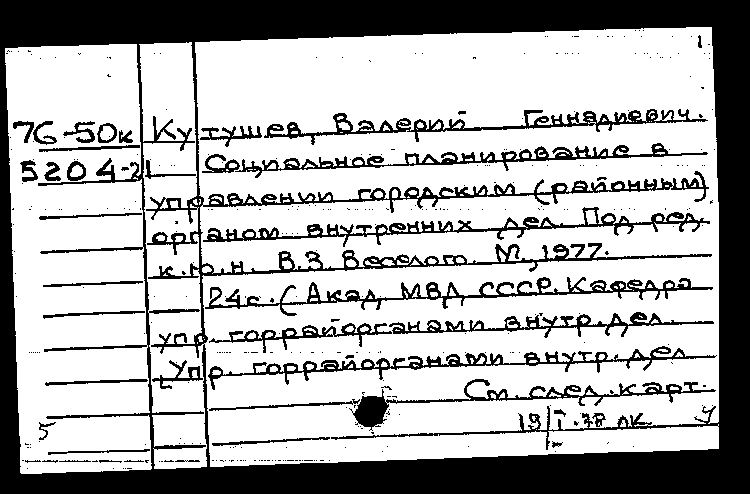 1
76-50к Кутушев, Валерий Геннадиевич.
5204-21 Социальное планирование в
управлении городским (районным)
органом внутренних дел. Под ред.
к.ю.н. В.З. Веселого. М., 1977.
24с. (Акад. МВД СССР. Кафедра
упр. горрайорганами внутр. дел.
Упр. горрайорганами внутр. дел
См. след. карт.
5 19/I-78 лк У